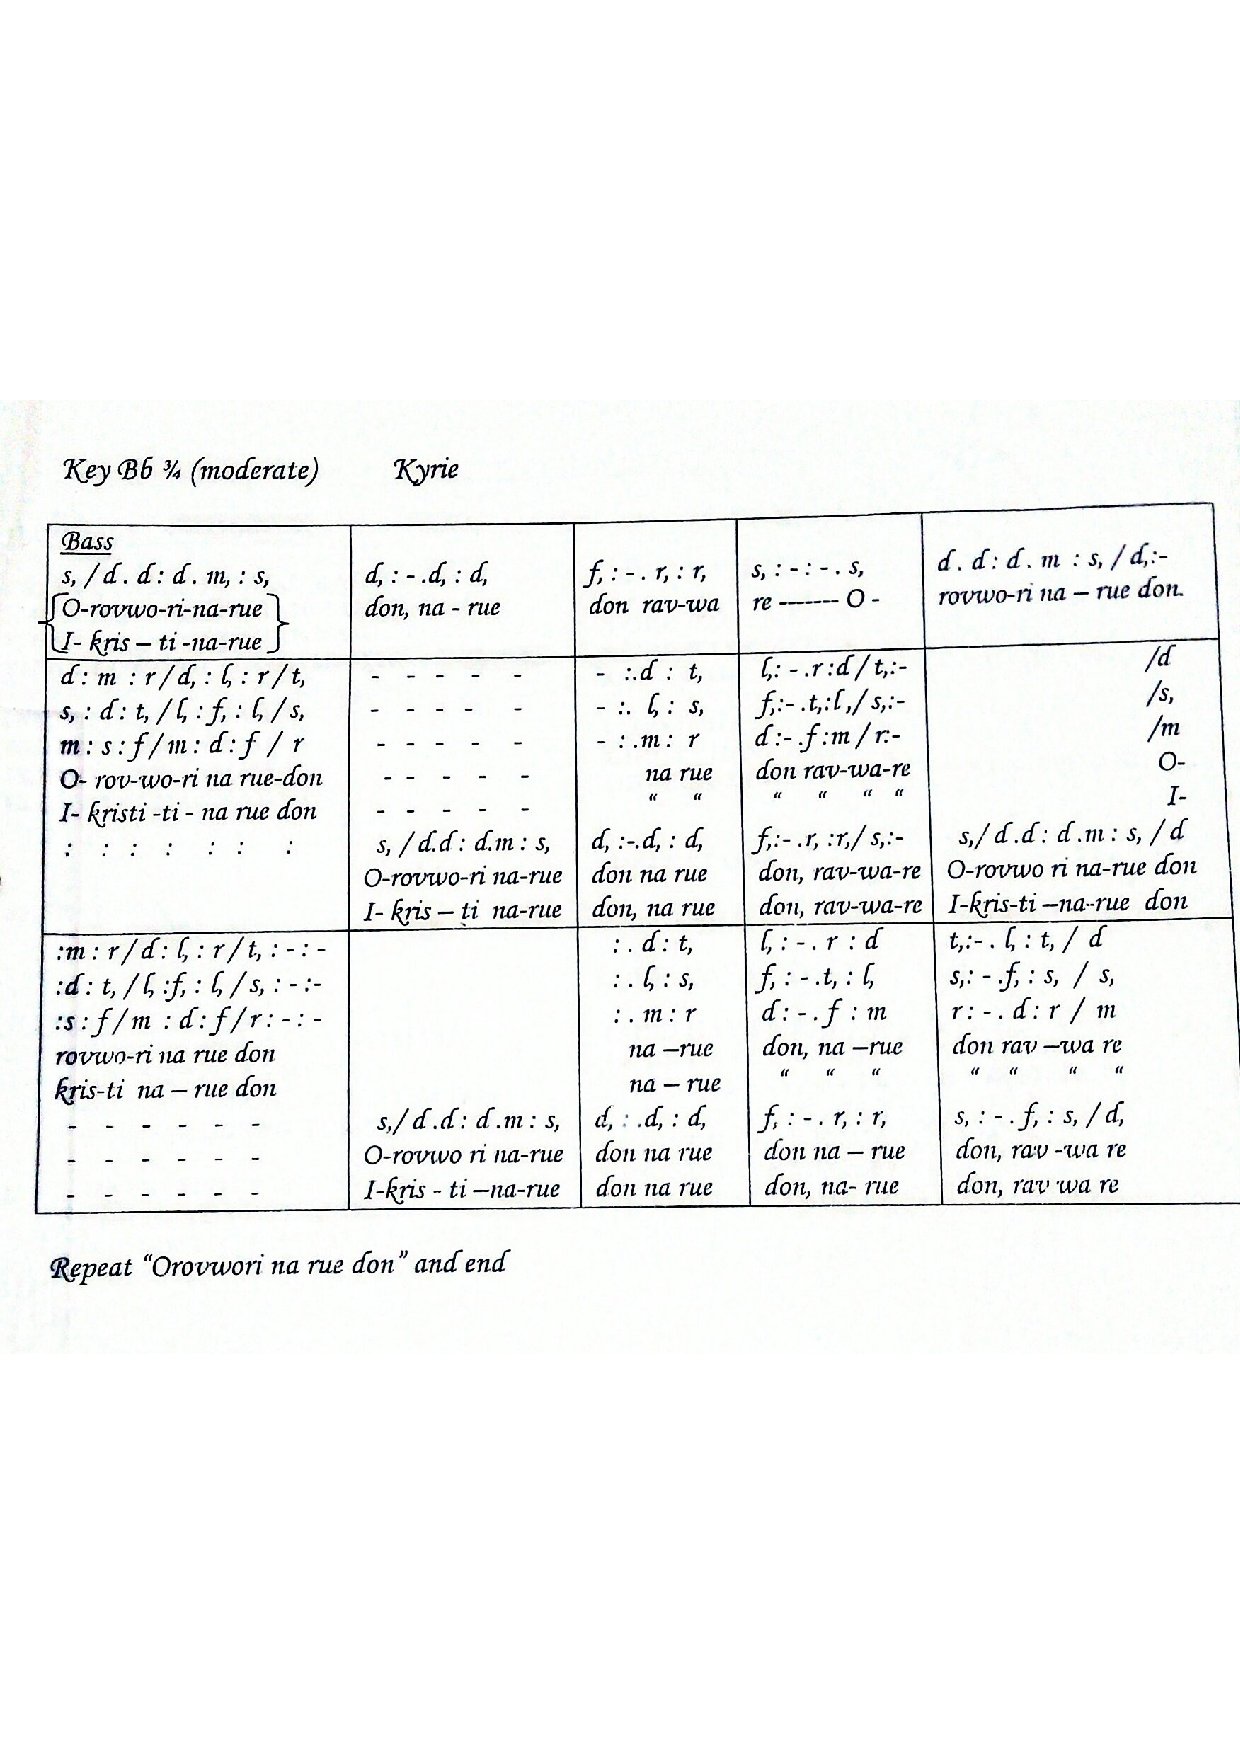 Key Bb ¾ (moderate) Kyrie
Bass
s, / d . d : d . m, : s,
O-rovwo-ri-na-rue
I- kris – ti -na-rue
d, : - .d, : d,
don, na - rue
f, : - . r, : r,
don rav-wa
s, : - : - . s,
re ------- O -
d . d : d . m : s, / d,:-
rovwo-ri na – rue don.
d : m : r / d, : l, : r / t,
s, : d : t, / l, : f, : l, / s,
m : s : f / m : d : f / r
O- rov-wo-ri na rue-don
I- kristi -ti - na rue don
: : : : : : :
- - - - -
- - - - -
- - - - -
- - - - -
- - - - -
s, / d.d : d.m : s,
O-rovwo-ri na-rue
I- kris – ti na-rue
- :.d : t,
- :. l, : s,
- : .m : r
na rue
“ “
d, :-.d, : d,
don na rue
don, na rue
l,: - .r :d / t,:-
f,:- .t,:l ,/ s,:-
d :- .f :m / r:-
don rav-wa-re
“ “ “ “
f,:- .r, :r,/ s,:-
don, rav-wa-re
don, rav-wa-re
/d
/s,
/m
O-
I-
s,/ d .d : d.m : s, / d
O-rovwo ri na-rue don
I-kris-ti –na-rue don
:m : r / d : l, : r / t, : - : -
:d : t, / l, :f, : l, / s, : - :-
:s : f / m : d : f / r : - : -
rovwo-ri na rue don
kris-ti na – rue don
- - - - - -
- - - - - -
- - - - - -
s,/ d .d : d .m : s,
O-rovwo ri na-rue
I-kris - ti –na-rue
: . d : t,
: . l, : s,
: . m : r
na –rue
na – rue
d, : .d, : d,
don na rue
don na rue
l, : - . r : d
f, : - .t, : l,
d : - . f : m
don, na –rue
“ “ “
f, : - . r, : r,
don na – rue
don, na- rue
t,:- . l, : t, / d
s,: - .f, : s, / s,
r : - . d : r / m
don rav –wa re
“ “ “ “
s, : - . f, : s, / d,
don, rav -wa re
don, rav wa re
Repeat “Orovwori na rue don” and end